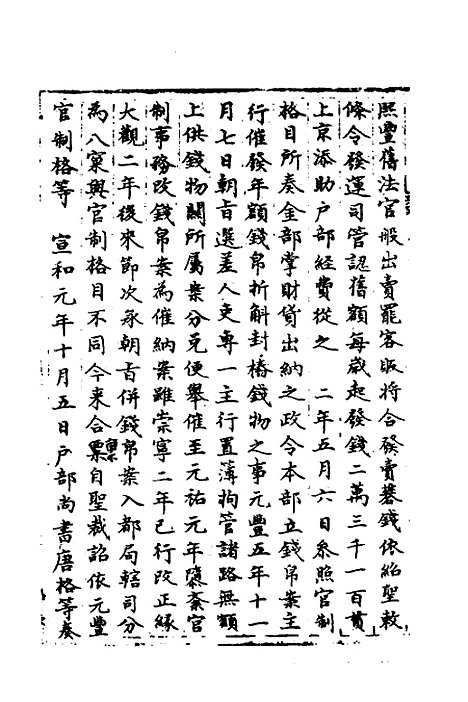 熙豐舊法官般出賣罷客販將合發賣礬錢依紹聖敕
條令發運司管認舊額每歲起發錢二萬三千一百貫
上京添助户部經費從之　二年五月六日參照官制
格目所奏金部掌財貨出納之政令本部立錢帛案主
行催發年額錢帛折斛封樁錢物之事元豐五年十一
月七日朝旨選差人吏專一主行置簿拘管諸路無額
上供錢物關所屬案分兑便舉催至元祐元年隳紊官
制事務改錢帛案為催納案雖崇寧二年已行改正緣
大觀二年後來節次承朝旨併錢帛案入都局轄司分
為八窠與官制格目不同今來合稟自聖裁詔依元豐
官制格等　宣和元年十月五日户部尚書唐格等奏